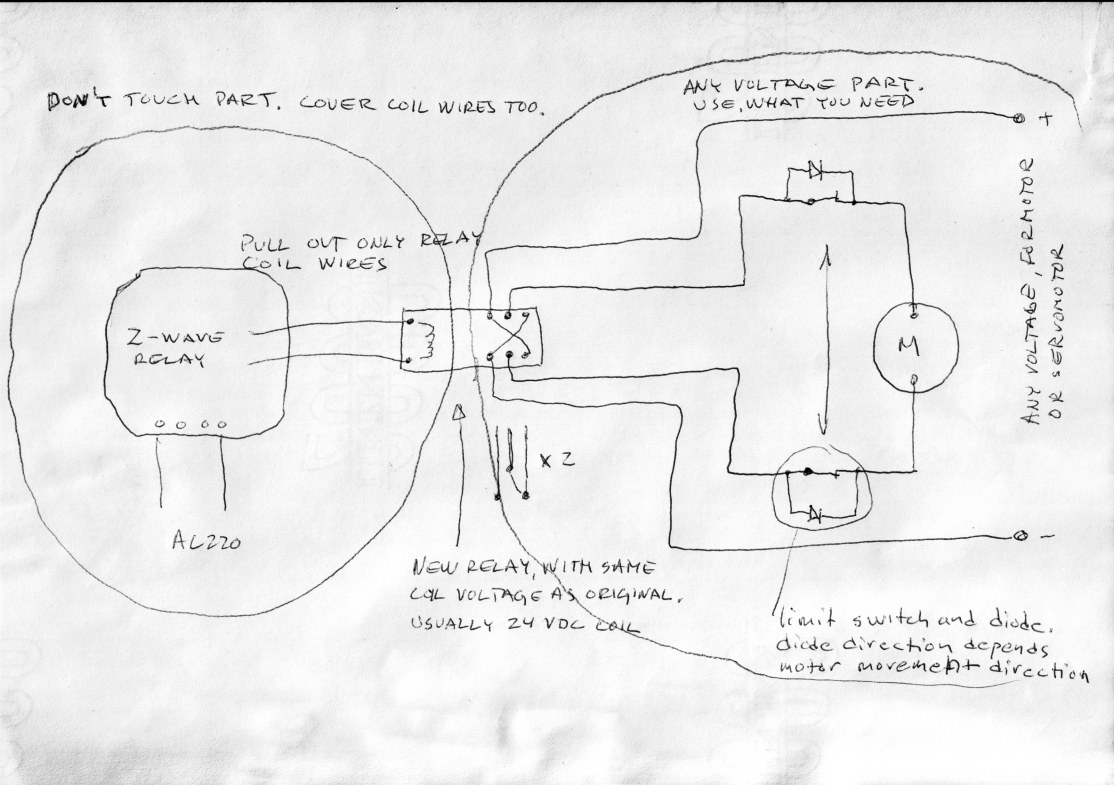 DON'T TOUCH PART. COVER COIL WIRES TOO.
ANY VOLTAGE PART.
USE, WHAT YOU NEED
+
PULL OUT ONLY RELAY
COIL WIRES
Z-WAVE
RELAY
M
ANY VOLTAGE, FORMOTOR
OR SERVOMOTOR
x 2
AC220
-
NEW RELAY, WITH SAME
COIL VOLTAGE AS ORIGINAL.
USUALLY 24 VDC COIL
limit switch and diode.
diode direction depends
motor movement direction